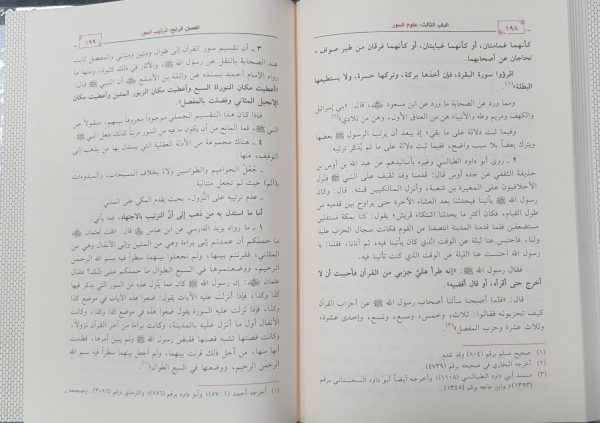 ١٩٨
الباب الثالث: علوم السور
كأنهما غمامتان، أو كأنهما غيايتان، أو كأنهما فرقان من طير صواف ـ
تحاجان عن أصحابهما.
اقرؤوا سورة البقرة، فإن أخذها بركة، وتركها حسرة، ولا يستطيعها
البطلة»(١).
ومما ورد عن الصحابة ما ورد عن ابن مسعود، قال: «بني إسرائيل
والكهف ومريم وطه والأنبياء هن من العتاق الأول، وهن من تلادي»(٢).
وفيما ثبت دلالة على ما بقي؛ إذ يبعد أن يرتب الرسول ﷺ بعضها
ويترك بعضاً بلا سبب واضح، ففيما ثبت دلالة على ما لم يُذكر ترتيبه.
٢ ـ روى أبو داود الطيالسي وغيره بأسانيدهم عن عبد الله بن أوس بن
حذيفة الثقفي عن جده أوس قال: قدمنا وفد ثقيف على النبي ﷺ فنزل
الأحلافيون على المغيرة بن شعبة، وأنزل المالكيين قبته. قال: وكان
رسول الله ﷺ يأتينا فيحدثنا بعد العشاء الآخرة حتى يراوح بين قدميه من
طول القيام، فكان أكثر ما يحدثنا اشتكاء قريش؛ يقول: كنا بمكة مستذلين
مستضعفين فلما قدمنا المدينة انتصفنا من القوم فكانت سجال الحرب علينا
ولنا، فاحتبس عنا ليلة عن الوقت الذي كان يأتينا فيه، ثم أتانا، فقلنا: يا
رسول الله احتبست عنا الليلة عن الوقت الذي كنت تأتينا فيه.
فقال رسول الله ﷺ: «إنه طرأ عليّ حزبي من القرآن فأحببت أن لا
أخرج حتى أقرأه، أو قال أقضيه».
قال: «فلما أصبحنا سألنا أصحاب رسول الله ﷺ عن أحزاب القرآن
كيف تحزبونه فقالوا: ثلاث، وخمس، وسبع، وتسع، وإحدى عشرة،
وثلاث عشرة وحزب المفصل»(٣).
(١) صحيح مسلم برقم (٨٠٤) وقد تقدم.
(٢) أخرجه البخاري في صحيحه برقم (٤٧٣٩).
(٣) مسند أبي داود الطيالسي (١١٠٨)؛ وأخرجه أيضاً أبو داود السجستاني برقم
(١٣٩٣)؛ وابن ماجه برقم (١٣٤٥).
الفصل الرابع: ترتيب السور
١٩٩
٣ ـ أن تقسيم سور القرآن إلى طوال ومئين ومثاني والمفصل ثابت
عند الصحابة بالنقل عن رسول الله ﷺ، والآثار في ذلك كثيرة، ومنها ما
رواه الإمام أحمد بسنده عن واثلة بن الأسقع أن النبي ﷺ قال:
«أعطيت مكان التوراة السبع وأعطيت مكان الزبور المئين وأعطيت مكان
الإنجيل المثاني وفضلت بالمفصل»
فإذا كان هذا التقسيم الجملي موجوداً معروفاً بينهم، منقولاً عن
النبي ﷺ، فما المانع من أن يكون ما فيه من السور مرتباً كذلك بفعل النبي ﷺ.
٤ ـ هناك مجموعة من الأدلة العقلية التي يستدل بها من يذهب إلى
التوقيف، منها:
ـ جَعْل الحواميم والطواسين ولاءً، بخلاف المسبحات، والمبدوءات
بـ(الم) حيث لم تجعل متتالية.
ـ عدم ترتيبه على النزول، بحيث يقدم المكي على المدني.
أما ما استدل به من ذهب إلى أن الترتيب بالاجتهاد، فما يأتي:
١ ـ ما رواه يزيد الفارسي عن ابن عباس قال: «قلت لعثمان
ما حملكم أن عمدتم إلى براءة وهي من المئين وإلى الأنفال وهي من
المثاني، فقرنتم بينها، ولم تجعلوا بينهما سطراً فيه بسم الله الرحمن
الرحيم، ووضعتموها في السبع الطوال ما حملكم على ذلك؟ فقال
عثمان: إن رسول الله ﷺ كان مما يُنزل عليه من السور التي يذكر فيها
كذا وكذا، فإذا أنزلت عليه الآيات يقول: ضعوا هذه الآيات في موضع كذا
وكذا، فإذا نزلت عليه السورة يقول ضعوا هذه في موضع كذا وكذا، وكانت
الأنفال أول ما أنزل عليه بالمدينة، وكانت براءة من آخر القرآن نزولاً،
وكانت قصتها تشبه قصتها فقبض رسول الله ﷺ ولم يبين أمرها، فظننت
أنها منها، من أجل ذلك قرنت بينهما، ولم أجعل بينهما سطراً فيه بسم الله
الرحمن الرحيم، ووضعتها في السبع الطوال»(١).
(١) أخرجه أحمد (١: ٥٧)؛ وأبو داود برقم (٧٨٦)؛ والترمذي برقم (٣٠٨٦)، وصححه ـ